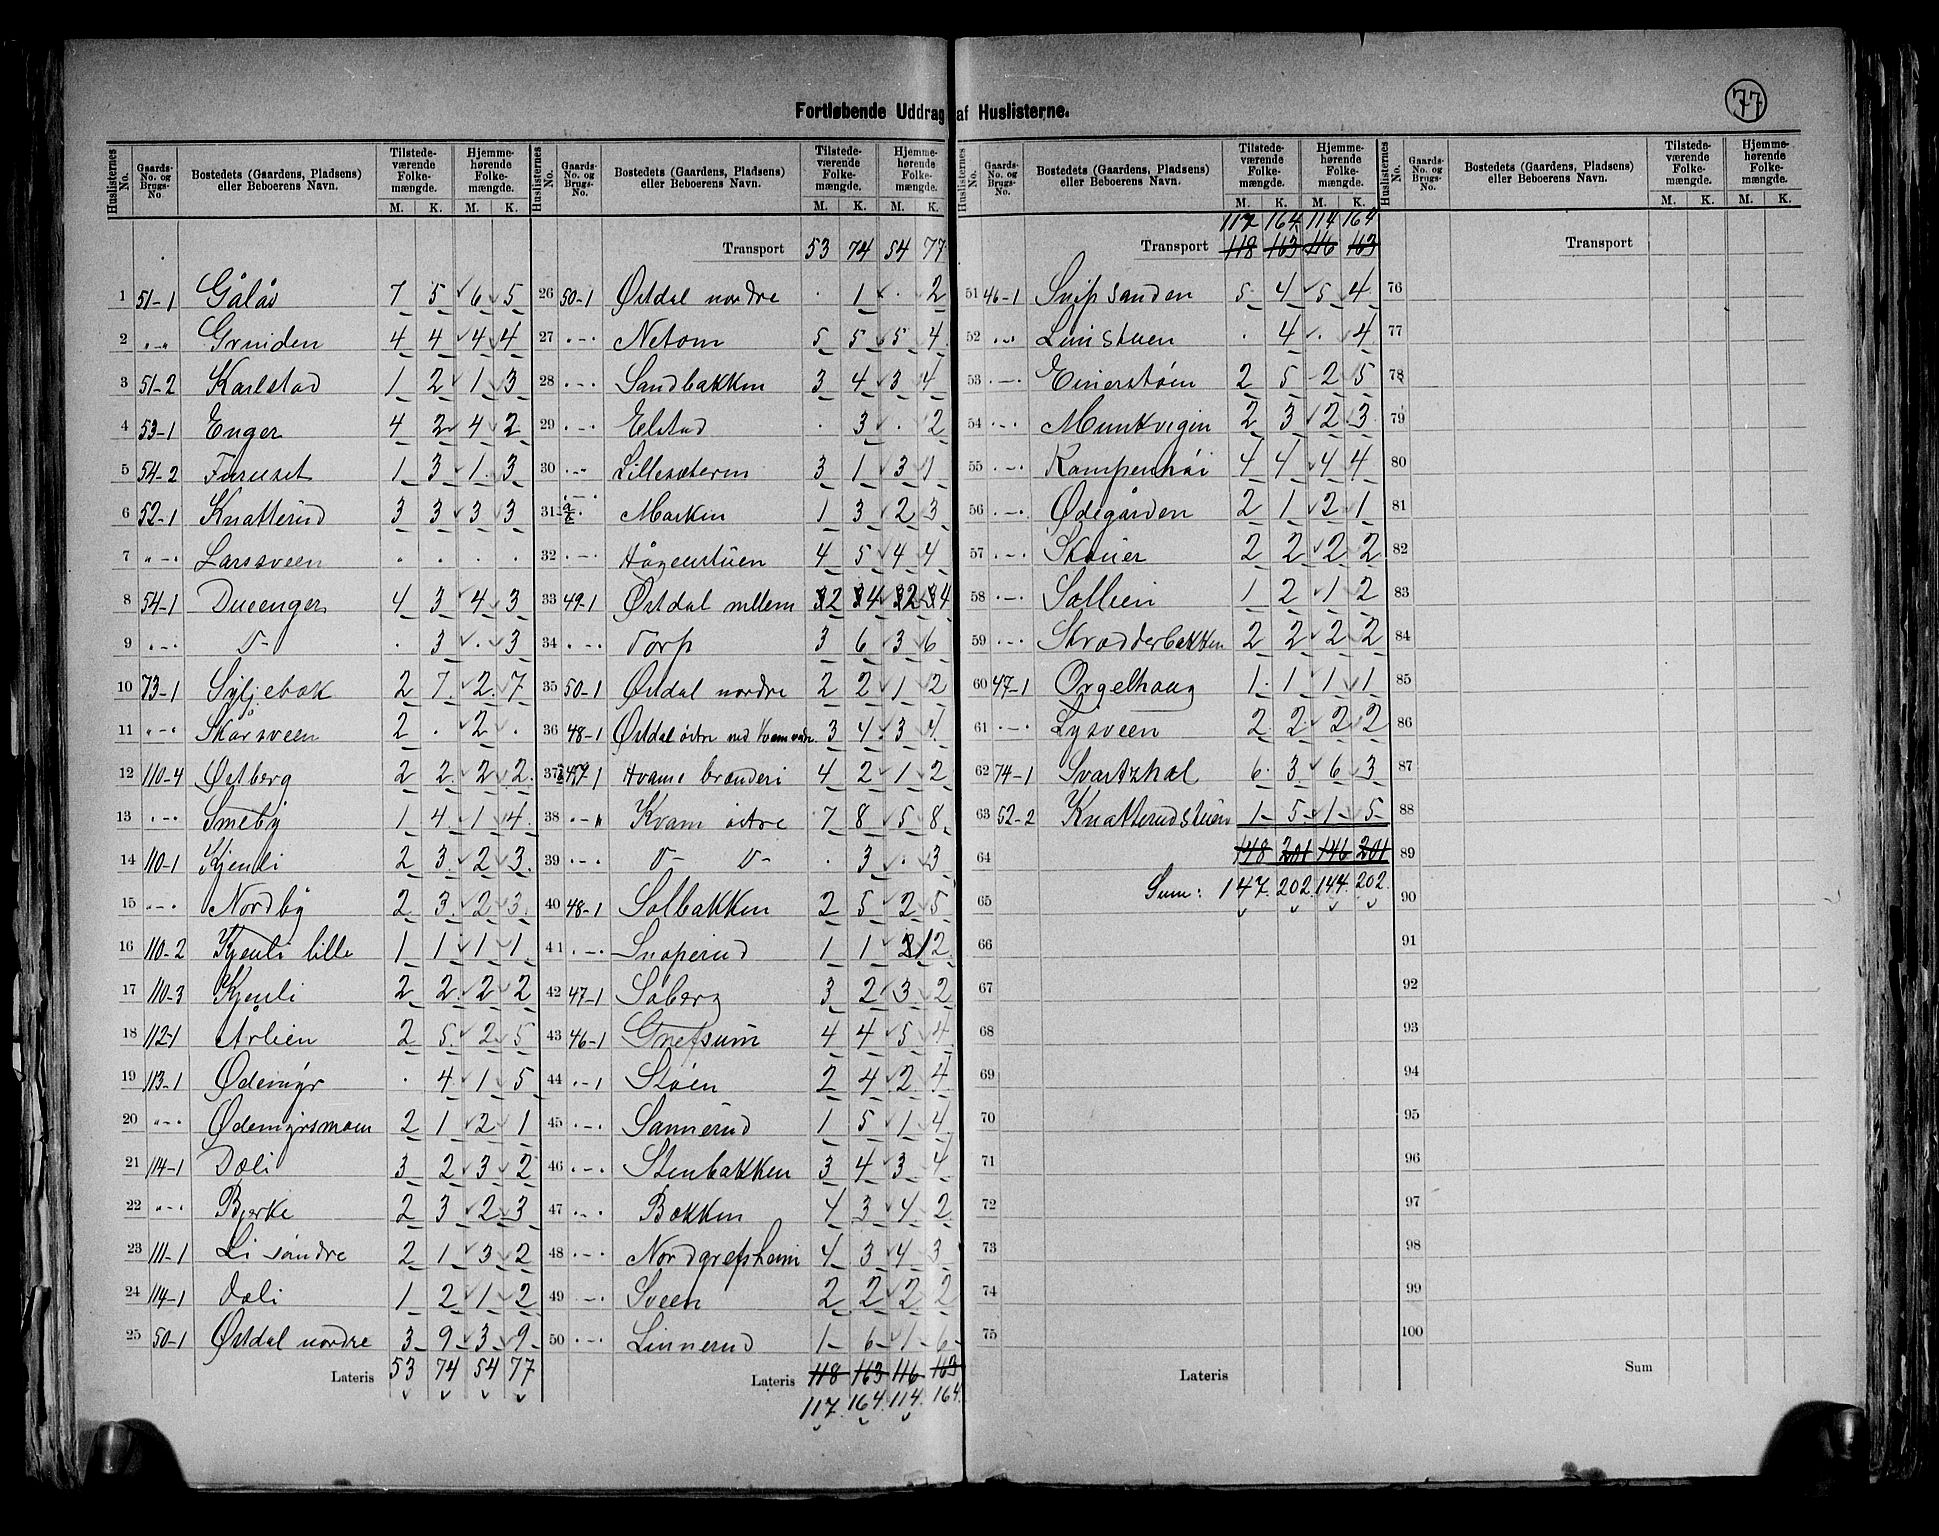 77
Fortløbende Uddrag af Huslisterne.
Huslisternes No. | Gaards-No. og Brugs-No. | Bostedets (Gaardens, Pladsens) eller Beboerens Navn. | Tilstedeværende Folkemængde. M. K. | Hjemmehørende Folkemængde. M. K.
1 51-1 Gålås 7 5 6 5
2 "-" Grinden 4 4 4 4
3 51-2 Karlstad 1 2 1 3
4 53-1 Enger 4 2 4 2
5 54-2 Furuset 1 3 1 3
6 52-1 Knatterud 3 3 3 3
7 "-" Larssveen . . . .
8 54-1 Dueenger 4 3 4 3
9 "-" D- . 3 . 3
10 73-1 Syljebæk 2 7 2 7
11 "-" Skårsveen 2 . 2 .
12 110-4 Østberg 2 2 2 2
13 "-" Smeby 1 4 1 4
14 110-1 Kjenli 2 3 2 3
15 "-" Nordby 2 3 2 3
16 110-2 Kjenli lille 1 1 1 1
17 110-3 Kjenli 2 2 2 2
18 112-1 Årlien 2 5 2 5
19 113-1 Ødemyr . 4 1 5
20 "-" Ødemyrsmoen 2 1 2 1
21 114-1 Dæli 3 2 3 2
22 "-" Bjerke 2 3 2 3
23 111-1 Li søndre 2 1 3 2
24 114-1 Dæli 1 2 1 2
25 50-1 Østdal nordre 3 9 3 9
Lateris 53 74 54 77
Transport 53 74 54 77
26 50-1 Østdal nordre . 1 . 2
27 "-" Netom 5 5 5 4
28 "-" Sandbakken 3 4 3 4
29 "-" Elstad . 3 . 2
30 "-" Lillesæteren 3 1 3 1
31 "-" Marken 1 3 2 3
32 "-" Hågenstuen 4 5 4 4
33 49-1 Østdal mellem 2 4 2 4
34 "-" Torp 3 6 3 6
35 50-1 Østdal nordre 2 2 1 2
36 48-1 Østdal østre med Kvam vdre. 3 4 3 4
37 47-1 Kvams brænderi 4 2 1 2
38 "-" Kvam østre 7 8 5 8
39 "-" D- D- . 3 . 3
40 48-1 Solbakken 2 5 2 5
41 "-" Snoperud 1 1 1 2
42 47-1 Soberg 3 2 3 2
43 46-1 Grefsum 4 4 5 4
44 "-1 Støen 2 4 2 4
45 "-" Sannerud 1 5 1 4
46 "-" Stenbakken 3 4 3 4
47 "-" Bækken 4 3 4 2
48 "-" Nordgrefsheim 4 3 4 3
49 "-" Sveen 2 2 2 2
50 "-" Linnerud 1 6 1 6
Lateris 118 163 116 163
117 164 114 164
117 164 114 164
Transport 118 163 116 163
51 46-1 Snipsanden 5 4 5 4
52 "-" Linistuen . 4 . 4
53 "-" Einerstøen 2 5 2 5
54 "-" Munkvigen 2 3 2 3
55 "-" Kampenhøi 4 4 4 4
56 "-" Ødegården 2 1 2 1
57 "-" Skauer 2 2 2 2
58 "-" Sollien 1 2 1 2
59 "-" Skrædderbakken 2 2 2 2
60 47-1 Orgelhaug 1 1 1 1
61 "-" Lysveen 2 2 2 2
62 74-1 Svartzhæl 6 3 6 3
63 52-2 Knatterudstuen 1 5 1 5
64 148 201 146 201
65 Sum: 147 202 144 202
66
67
68
69
70
71
72
73
74
75
Lateris
Transport
76
77
78
79
80
81
82
83
84
85
86
87
88
89
90
91
92
93
94
95
96
97
98
99
100
Sum